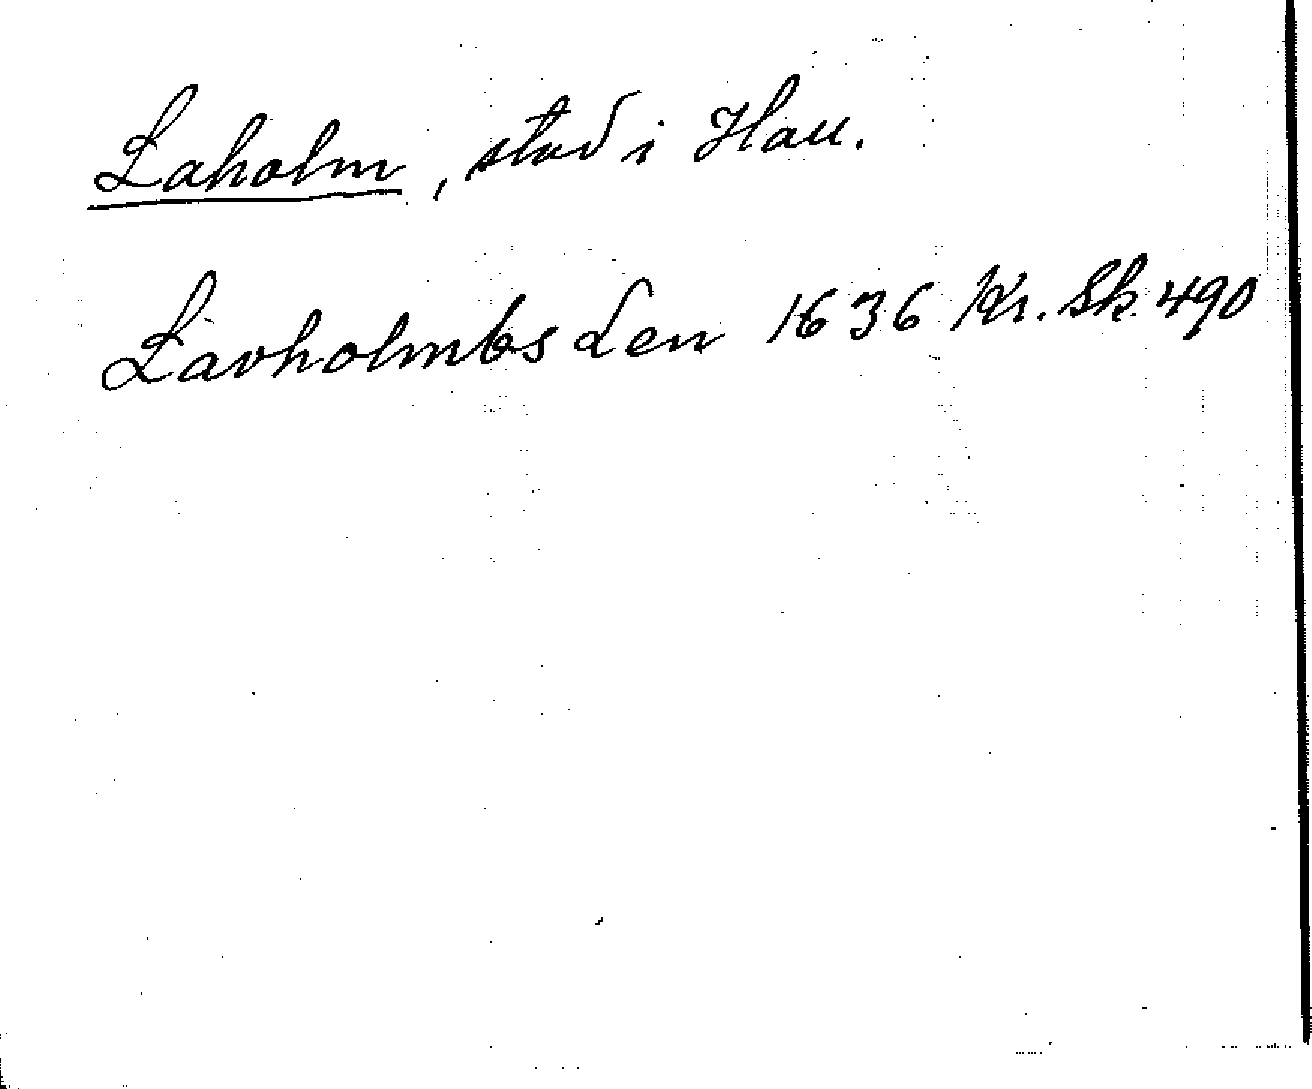 Laholm, stad i Hall.
Lavholmbs Len 1636 Kr. Sk. 490